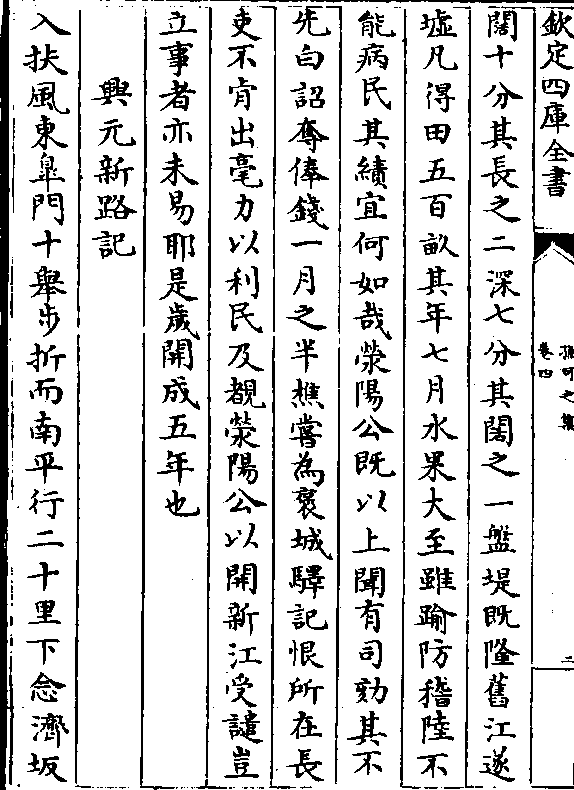 欽定四庫全書
孫可之集
卷四
二
闊十分其長之二深七分其闊之一盤堤既隆舊江遂
墟凡得田五百畝其年七月水果大至雖踰防稽陸不
能病民其績宜何如哉滎陽公既以上聞有司劾其不
先白詔奪俸錢一月之半樵嘗為褒城驛記恨所在長
吏不肯出毫力以利民及覩滎陽公以開新江受譴豈
立事者亦未易耶是歲開成五年也
興元新路記
入扶風東臯門十舉步折而南平行二十里下念濟坂